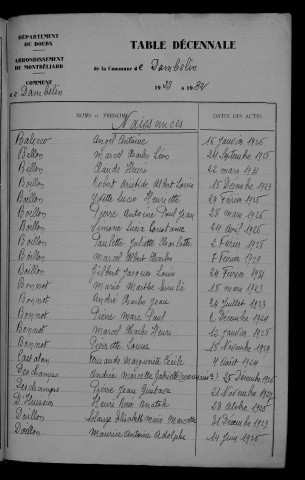 DÉPARTEMENT
DU DOUBS
ARRONDISSEMENT
DE MONTBÉLIARD
COMMUNE
de Dambelin
TABLE DÉCENNALE
de la Commune de Dambelin
1923 à 19
NOMS et PRÉNOMS
DATES DES ACTES
Naissances
Angel Antoine 15 Janvier 1926
Boillon Marcel Charles Léon 24 Septembre 1925
Boillon Claude Henri 22 mars 1931
Boillon Robert Aristide Albert Louis 15 Décembre 1923
Boillon Yvette Lucie Henriette 24 Février 1925
Boillon Pierre Antoine Paul Jean 28 mars 1926
Boillon Simone Lucie Constance 24 Avril 1926
Boillon Paulette Juliette Charlotte 2 Février 1925
Boillon Marcel Albert Charles Février 1929
Boillon Gilbert Jacques Louis 24 Février 1931
Bonnot Marie Marthe 15 mars 1923
Bonnot André Charles Jean 24 Juillet 1923
Bonnot Pierre Marc Paul 6 Décembre 1924
Bonnot Marcel Charles Henri 12 Janvier 1925
Bonnot Pierrette Louise 15 Novembre 1929
Marguerite Cécile 7 Août 1924
Deschamps Andrée Marcelle Gabrielle 25 Décembre
Deschamps Pierre Jean Gustave 21 Novembre
Henri René Anatole 23 Octobre 1925
Solange Elisabeth Marie Marcelle 31 Décembre 1923
Doillon Maurice Antoine Adolphe 14 Juin